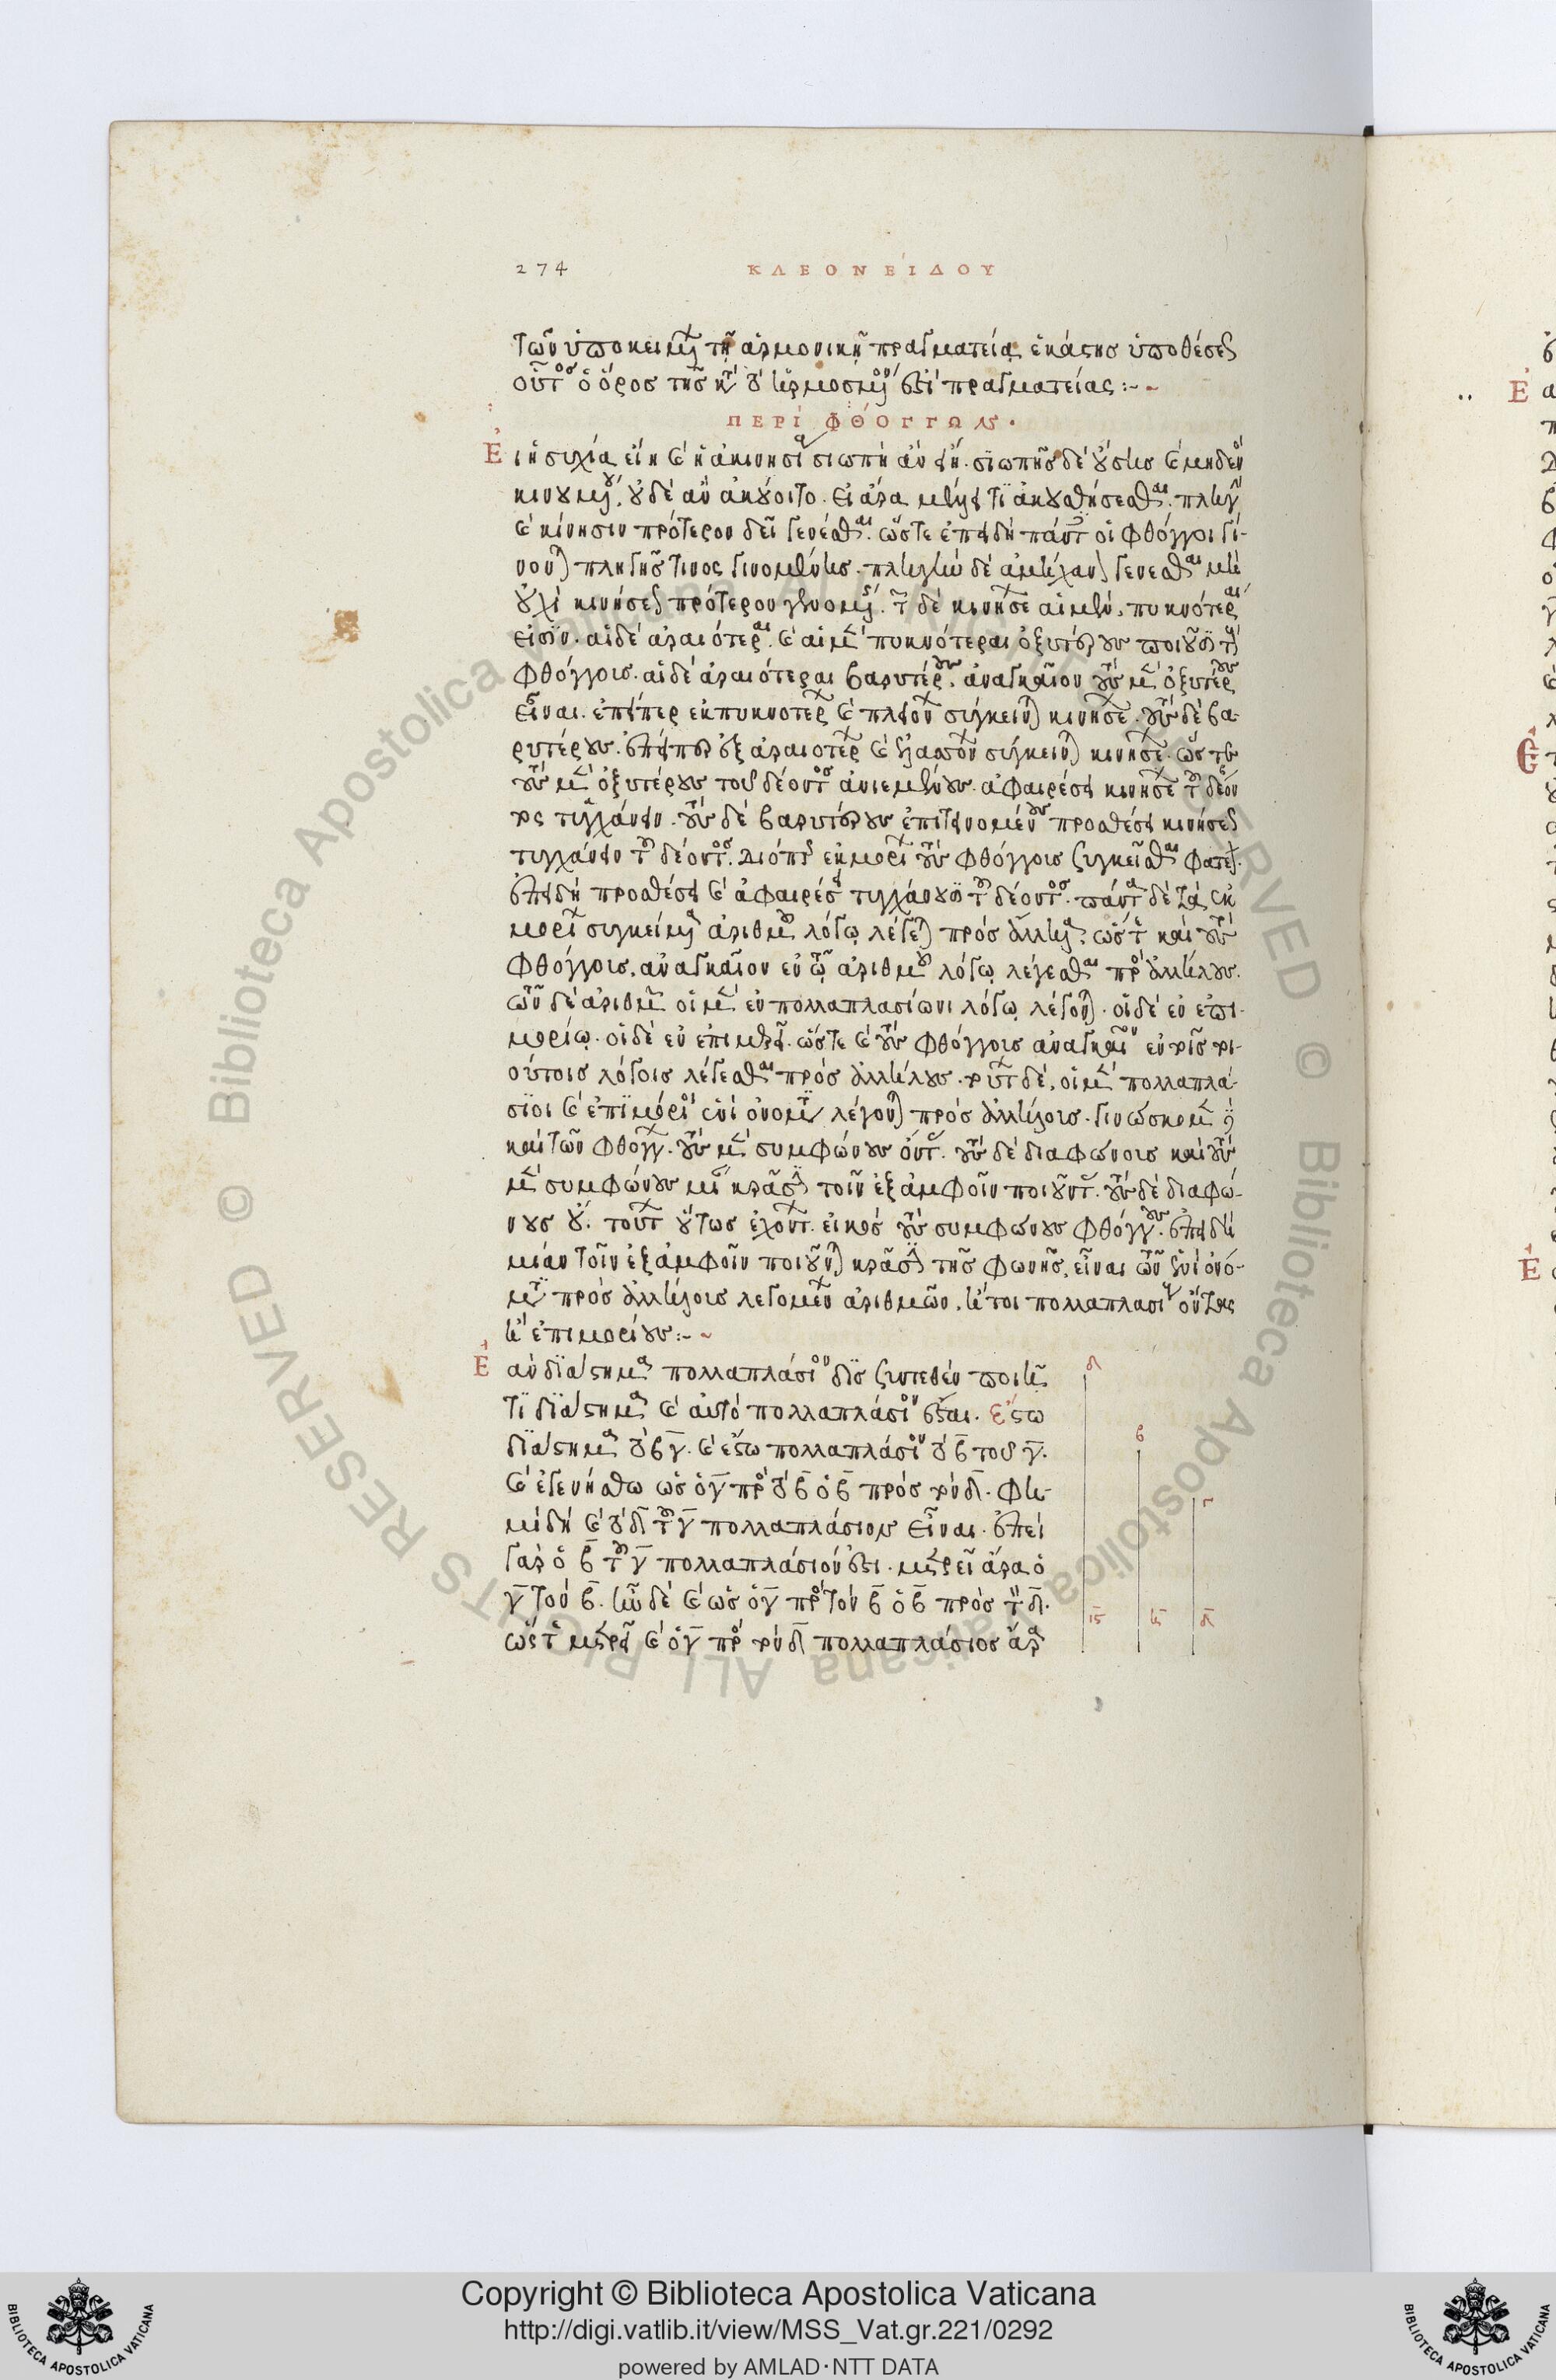 274 ΚΛΕΟΝΕΊΔΟΥ
τῶν ὑποκειμένων τῇ ἁρμονικῇ πραγματείᾳ ἑκάστης ὑποθέσεως
οὗτος ὁ ὅρος τῆς κατὰ τὸ ἡρμοσμένον ἐστὶ πραγματείας:~
ΠΕΡῚ ΦΘΌΓΓΩΝ.
Εἰ ἡσυχία εἴη καὶ ἡ ἀκινησία σιωπὴ ἂν εἴη. σιωπῆς δὲ οὔσης καὶ μηδενὸς
κινουμένου, οὐδὲ ἂν ἀκούοιτο. εἰ ἄρα μέλλει τι ἀκουσθήσεσθαι. πληγὴν
καὶ κίνησιν πρότερον δεῖ γενέσθαι. ὥστε ἐπειδὴ πάντες οἱ φθόγγοι γί-
νονται πληγῆς τινος γινομένης. πληγὴν δὲ ἀμήχανον γενέσθαι μὴ
οὐχὶ κινήσεως πρότερον γενομένης. τῶν δὲ κινήσεων αἱ μὲν, πυκνότεραί
εἰσιν. αἱ δὲ ἀραιότεραι. καὶ αἱ μὲν πυκνότεραι ὀξυτέρους ποιοῦσι τοὺς
φθόγγους. αἱ δὲ ἀραιότεραι βαρυτέρους. ἀναγκαῖον τοὺς μὲν ὀξυτέρους
εἶναι. ἐπείπερ ἐκ πυκνοτέρων καὶ πλειόνων σύγκεινται κινήσεων. τοὺς δὲ βα-
ρυτέρους. ἐπείπερ ἐξ ἀραιοτέρων καὶ ἐλασσόνων σύγκεινται κινήσεων. ὥστε
τοὺς μὲν ὀξυτέρους τοῦ δέοντος ἀνιεμένους. ἀφαιρέσει κινήσεως τοῦ δέον-
τος τυγχάνειν. τοὺς δὲ βαρυτέρους ἐπιτεινομένους προσθέσει κινήσεως
τυγχάνειν τοῦ δέοντος. διόπερ ἐκ μορίων τοὺς φθόγγους συγκεῖσθαι φατέον.
ἐπειδὴ προσθέσει καὶ ἀφαιρέσει τυγχάνουσι τοῦ δέοντος. πάντα δὲ τὰ ἐκ
μορίων συγκείμενα ἀριθμοῦ λόγῳ λέγεται πρὸς ἄλληλα. ὥστε καὶ τοὺς
φθόγγους. ἀναγκαῖον ἐν τῷ ἀριθμοῦ λόγῳ λέγεσθαι πρὸς ἀλλήλους.
τῶν δὲ ἀριθμῶν οἱ μὲν ἐν πολλαπλασίωνι λόγῳ λέγονται. οἱ δὲ ἐν ἐπι-
μορίῳ. οἱ δὲ ἐν ἐπιμερεῖ. ὥστε καὶ τοὺς φθόγγους ἀναγκαῖον ἐν τοῖς τοι-
ούτοις λόγοις λέγεσθαι πρὸς ἀλλήλους. τούτων δὲ, οἱ μὲν πολλαπλά-
σιοι καὶ ἐπιμόριοι ἑνὶ ὀνόματι λέγονται πρὸς ἀλλήλοις. γινώσκομεν δὲ
καὶ τῶν φθόγγων. τοὺς μὲν συμφώνους ὄντας. τοὺς δὲ διαφώνοις καὶ τοὺς
μὲν συμφώνους μίαν κρᾶσιν τοῖν ἐξ ἀμφοῖν ποιοῦντας. τοὺς δὲ διαφώ-
νους οὔ. τούτων οὕτως ἐχόντων. εἰκὸς τοὺς συμφώνους φθόγγους. ἐπειδὴ
μίαν τοῖν ἐξ ἀμφοῖν ποιοῦνται κρᾶσιν τῆς φωνῆς, εἶναι τῶν ἐν ἑνὶ ὀνό-
ματι πρὸς ἀλλήλοις λεγομένων ἀριθμῶν. ἤτοι πολλαπλασίους ὄντας
ἢ ἐπιμορίους:~
Ἐὰν διάστημα πολλαπλάσιον δὶς συντεθὲν ποιῇ
τι διάστημα καὶ αὐτὸ πολλαπλάσιον ἔσται. ἔστω
διάστημα τὸ βγ. καὶ ἔστω πολλαπλάσιον τὸ β τοῦ γ.
καὶ γενήσθω ὡς ὁ γ πρὸς τὸ β ὁ β πρὸς τὸν δ. φη-
μὶ δὴ καὶ τὸ δ τοῦ γ πολλαπλάσιον εἶναι. ἐπεὶ
γὰρ ὁ β τοῦ γ πολλαπλάσιόν ἐστι. μετρεῖ ἄρα ὁ
γ τὸν β. ἦν δὲ καὶ ὡς ὁ γ πρὸς τὸν β ὁ β πρὸς τὸν δ.
ὥστε μετρεῖ καὶ ὁ γ πρὸς τὸν δ πολλαπλάσιος ἄρα
δ
β
γ
ις
η
δ
Copyright © Biblioteca Apostolica Vaticana
http://digi.vatlib.it/view/MSS_Vat.gr.221/0292
powered by AMLAD·NTT DATA